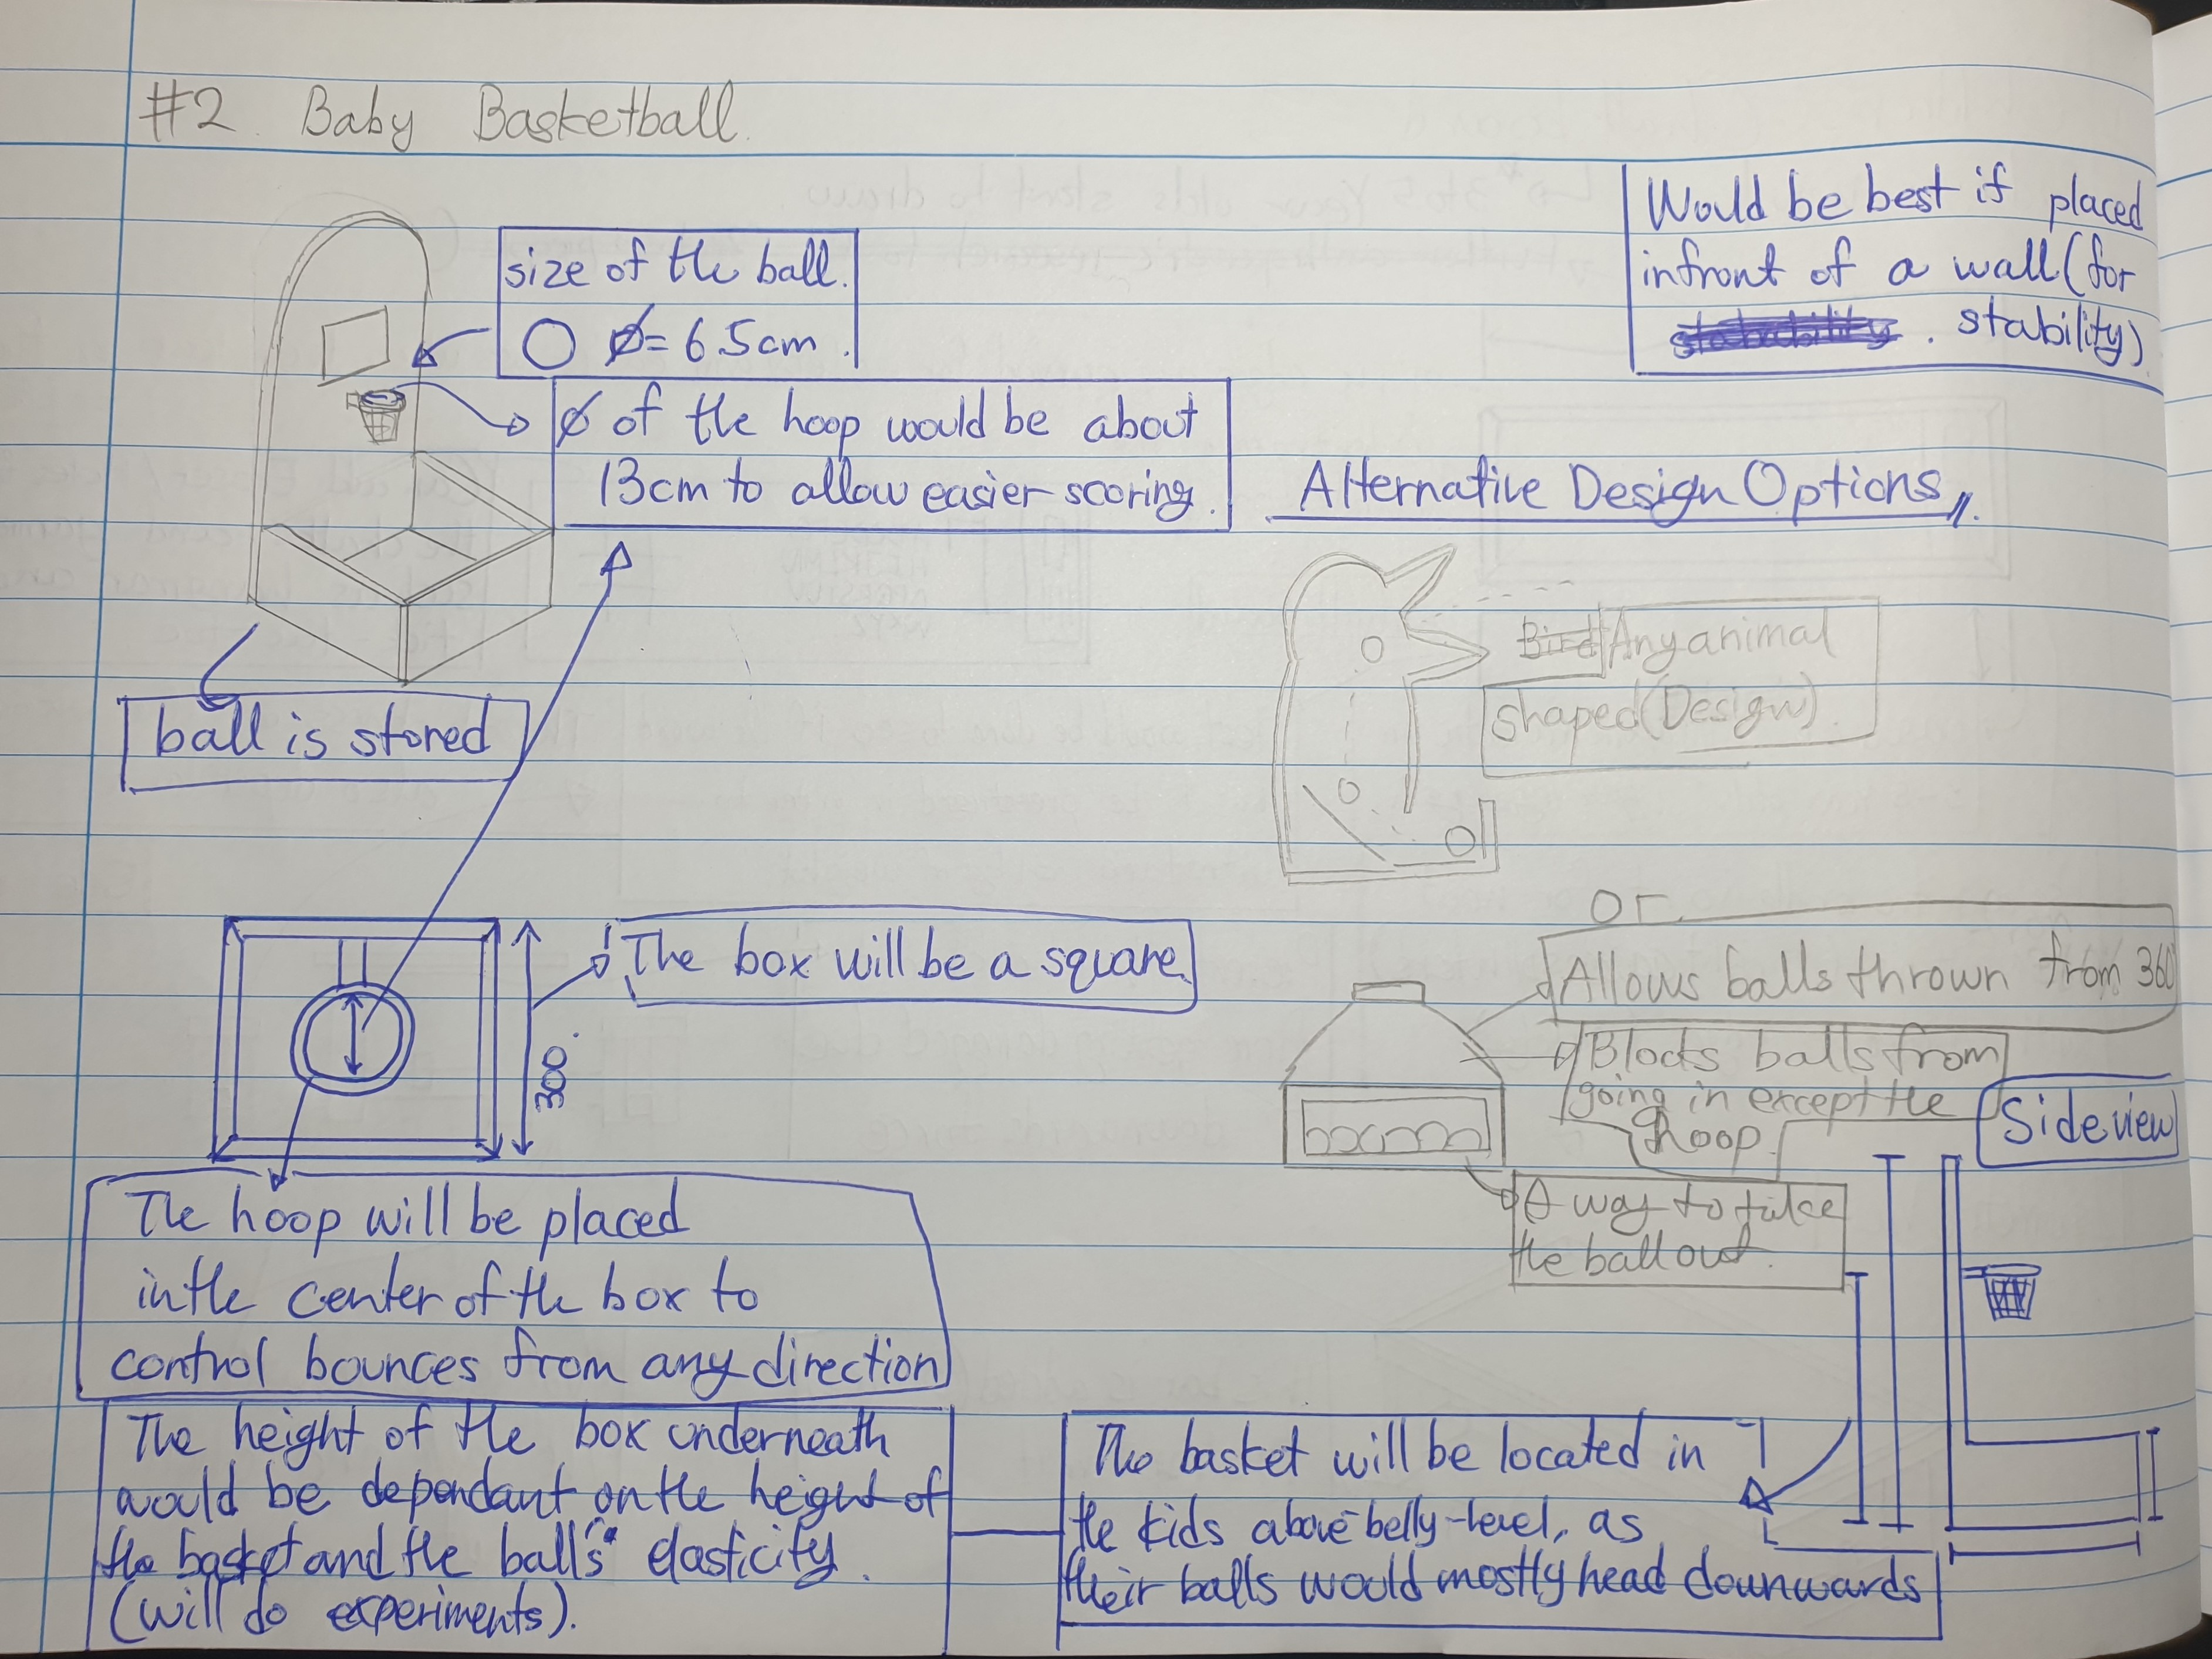 #2. Baby Basketball.
size of the ball.
Ø= 6.5cm.
Ø of the hoop would be about
13cm to allow easier scoring.
Would be best if placed
infront of a wall (for
stability)
ball is stored
Alternative Design Options
Any animal
shaped (Design).
or
Allows balls thrown from 360
Blocks balls from
going in except the
hoop.
A way to take
the ball out.
Side view
The box will be a square
300.
The hoop will be placed
in the center of the box to
control bounces from any direction
The height of the box underneath
would be dependant on the height of
the basket and the ball's elasticity.
(will do experiments).
The basket will be located in
the kids above belly-level, as
their balls would mostly head downwards